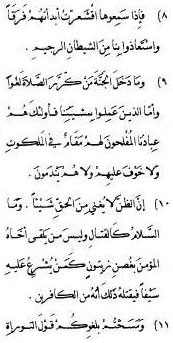 ٨) فإذا سمعوها اقشعرّت أبدانهم فَرَقاً
واستعاذوا بنا من الشيطان الرجيم .
٩) وما دخل الجنّة من كرّر الصلاة لغواً
وأمّا الذين عملوا بسنّتنا فأولئك هم
عبادنا المخلصون لهم مقام في الملكوت
ولا خوف عليهم ولا هم يندمون .
١٠) إنّ الظنّ لا يغني من الحق شيئاً . وما
السلام كالقتال وليس من يلقى أخاه
المؤمن بغصن زيتون كمن يشرع عليه
سيفاً فيقتله ذلك أنّه من الكافرين .
١١) ونسختم بلغوكم قول التوراة